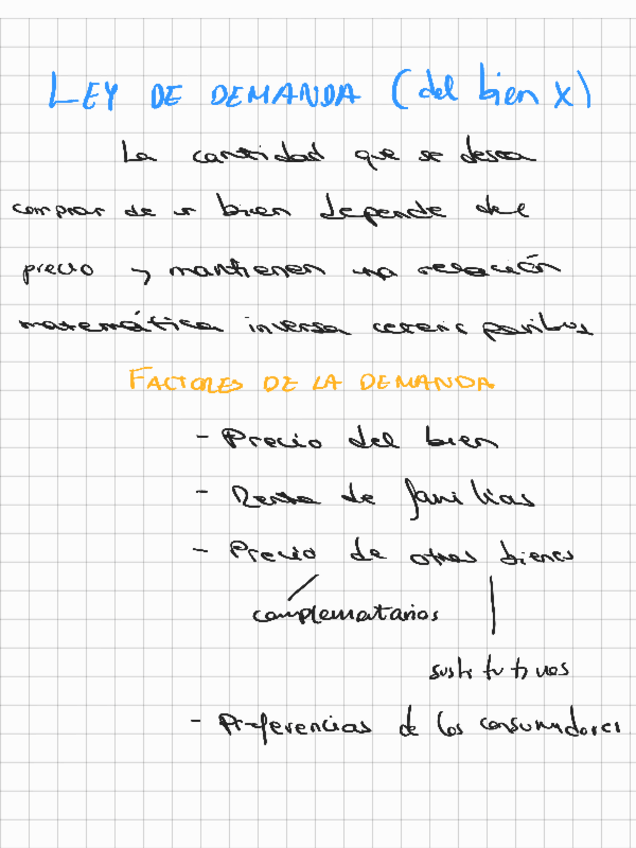 LEY DE DEMANDA (del bien X)
La cantidad que se desea
comprar de un bien depende del
precio y mantienen una relación
matemática inversa ceteris paribus
FACTORES DE LA DEMANDA
- Precio del bien
- Renta de familias
- Precio de otros bienes
complementarios
sustitutivos
- Preferencias de los consumidores